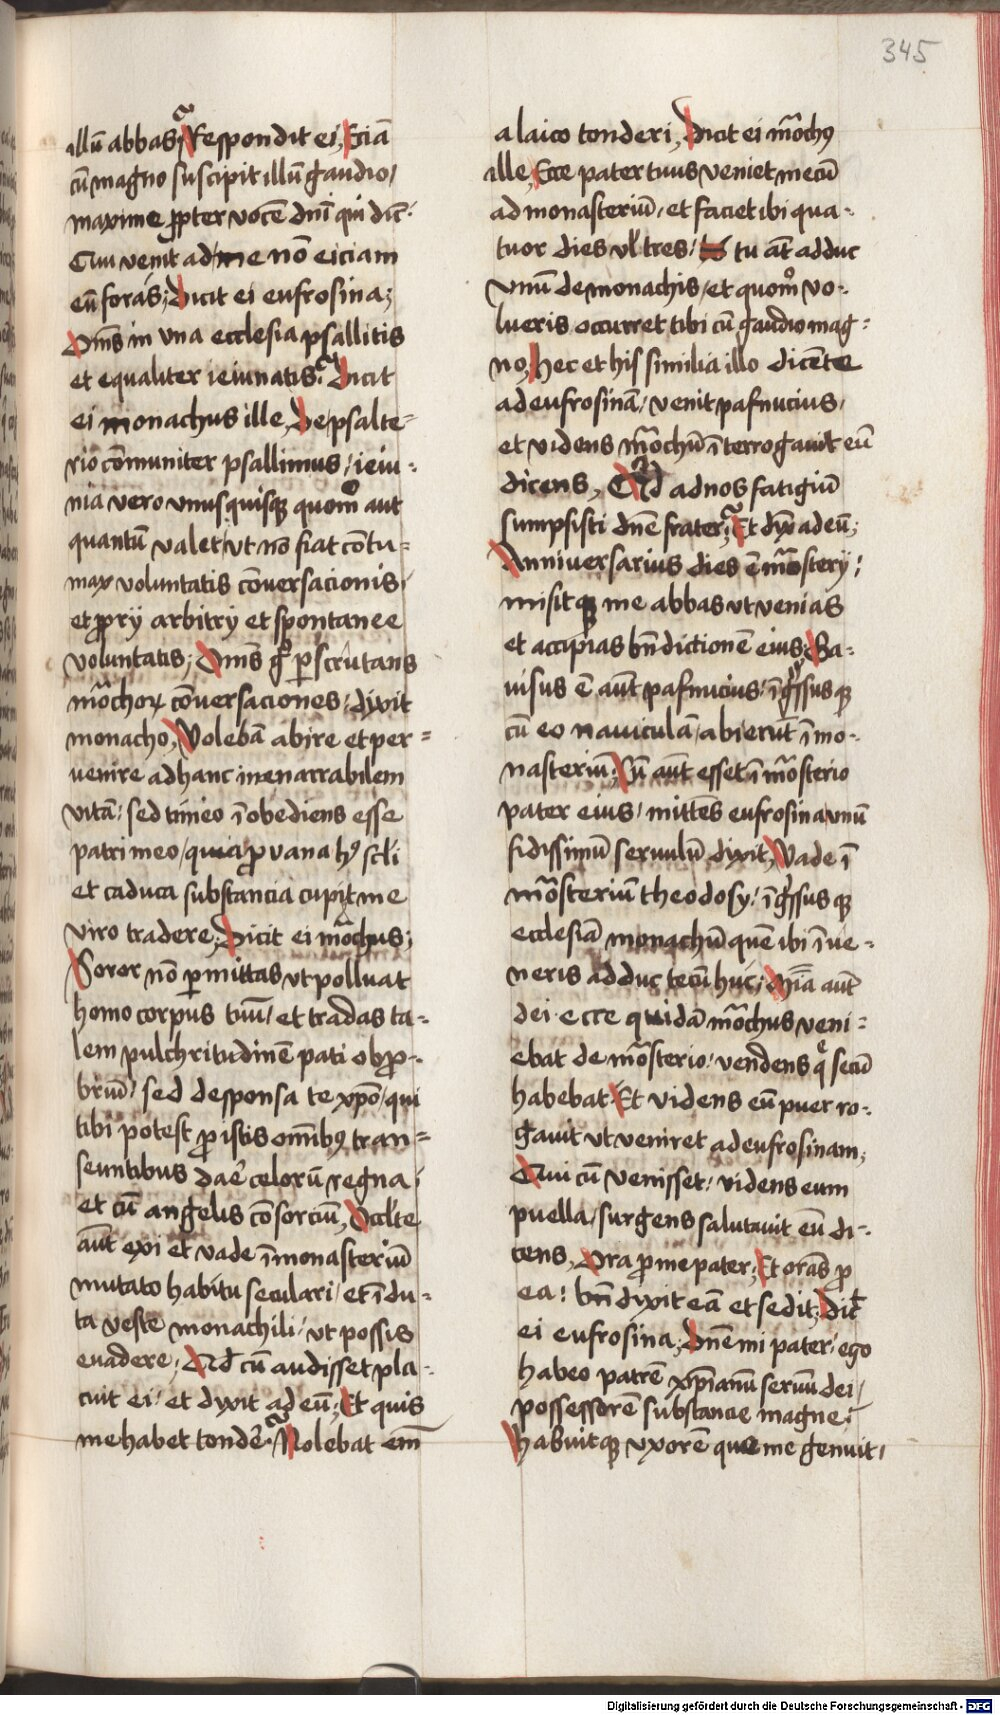 345
illū abbas? Respondit ei, Eciā
cū magno suscipit illū gaudio/
maxime ꝓpter vocē dnī qui dic̄:
Qui venit ad me nō eiciam
eū foras; Dicit ei eufrosina;
Om̄s in vna ecclesia psallitis
et equaliter ieiunatis? Dicit
ei monachus ille, De psalte=
rio cōmuniter psallimus/ ieiu-
nia vero vnusquisqꝫ quomͦ aut
quantū valet/ vt nō fiat contu=
max voluntatis cōuersacionis/
et ꝓprij arbitrij et spontanee
voluntatis; Om̄s gͦ ꝑscrutans
mͣochoꝝ cōuersaciones/ dixit
monacho, Volebā abire et per=
venire ad hanc inenarrabilem
vitā: sed timeo īobediens esse
patri meo/ quia ꝓ vana hꝰ scl̄i
et caduca substancia cupit me
viro tradere; Dicit ei mͣochus;
Soror nō ꝑmittas vt polluat
homo corpus tuū/ et tradas ta-
lem pulchritudinē pati obꝓ-
briū/ sed desponsa te xp̄o/ qui
tibi potest ꝓ istis om̄ibꝰ tran=
seuntibus dare celorū regna/
et cū angelis consorciū, Occl̄te
aūt exi et vade ī monasteriū
mutato habitu seculari/ et īdu-
ta veste monachili/ vt possis
euadere; Qd̄ cū audisset pla-
cuit ei/ et dixit ad eū; Et quis
me habet tonderͤ? Nolebat em̄
a laico tonderi, Dicit ei mͣochꝰ
ille, Ecce pater tuus veniet mecū
ad monasteriū/ et faciet ibi qua-
tuor dies vl̄ tres/ tu aūt adduc
vnū de monachis/ et quomͦ vo-
lueris occurret tibi cū gaudio mag-
no, Hec et his similia illo dicēte
ad eufrosinā/ venit pafnucius/
et videns mͣochū īterrogauit eū
dicens, Qͥd ad nos fatigiū
sumpsisti dn̄e frater? Et dix̄ ad eū;
Anniuersarius dies ē mͣosterij/
misitqꝫ me abbas vt venias
et accipias bn̄dictionē eius, Ga-
uisus ē aūt pafnucius/ īgͬssusqꝫ
cū eo nauiculā/ abierūt ī mo-
nasteriū; Cū aūt esset ī mͣosterio
pater eius/ mittēs eufrosina vnū
fidissimū seruulū dixit, Vade ī
mͣosteriū theodosij/ īgͬssusqꝫ
ecclesiā monachū quē ibi īue-
neris adduc tecū huc; mīa aūt
dei ecce quidā mͣochus veni=
ebat de mͣosterio/ vendens qͤ secū
habebat Et videns eū puer ro-
gauit vt veniret ad eufrosinam,
Qui cū venisset/ videns eum
puella/ surgens salutauit eū di-
cens, Ora ꝓ me pater, Et orās ꝓ
ea/ bn̄dixit eā et sedit; Dic̄
ei eufrosina, Dn̄e mi pater/ ego
habeo patrē xp̄ianū seruū dei/
possessorē substancie magne/
habuitqꝫ vxorē que me genuit/
Digitalisierung gefördert durch die Deutsche Forschungsgemeinschaft - DFG